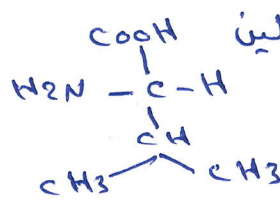 COOH
H2N - C - H
CH
CH3 CH3